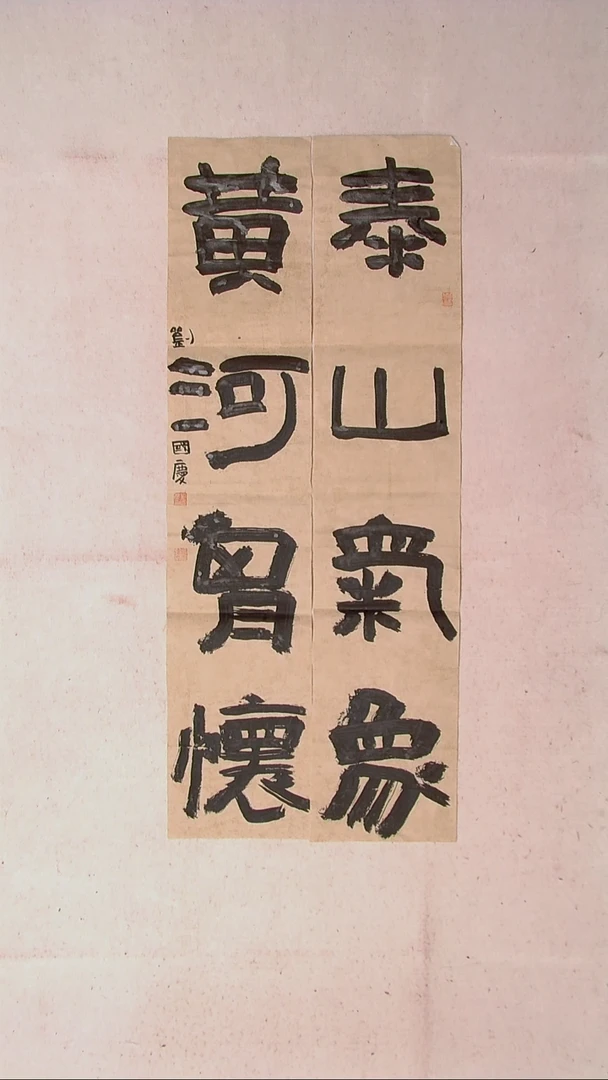 泰山氣象
黃河胷懷
劉國慶